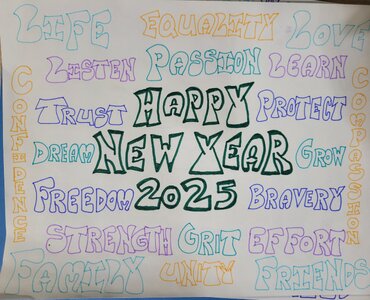 LIFE EQUALITY LOVE
LISTEN PASSION LEARN
TRUST HAPPY PROTECT
DREAM NEW YEAR GROW
FREEDOM 2025 BRAVERY
STRENGTH GRIT EFFORT
FAMILY UNITY FRIENDS
CONFIDENCE
COMPASSION